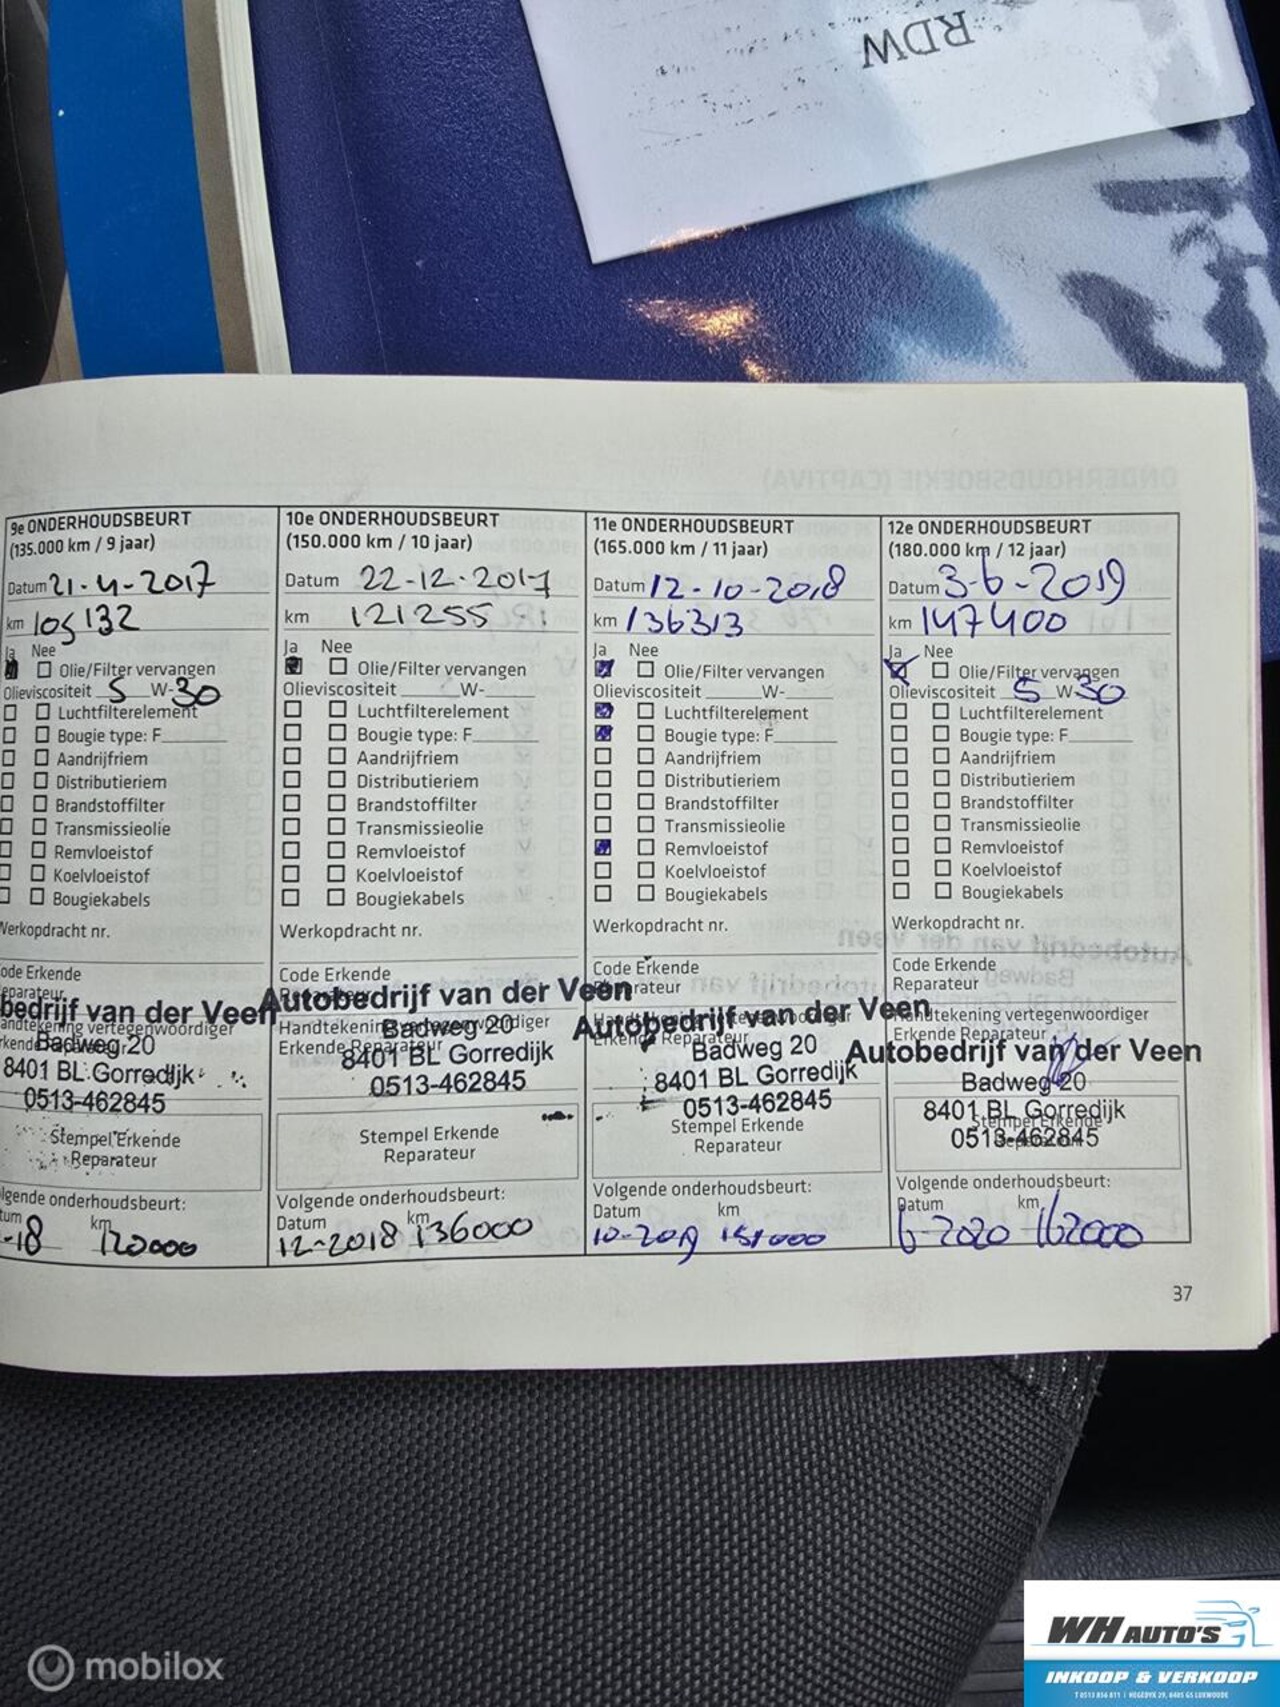 RDW
ONDERHOUDSBOEKJE (CAPTIVA)
9e ONDERHOUDSBEURT
(135.000 km / 9 jaar)
Datum 21-4-2017
km 105132
Ja Nee
Olie/Filter vervangen
Olieviscositeit 5 W-30
Luchtfilterelement
Bougie type: F
Aandrijfriem
Distributieriem
Brandstoffilter
Transmissieolie
Remvloeistof
Koelvloeistof
Bougiekabels
Werkopdracht nr.
ode Erkende
eparateur
bedrijf van der Veen
andtekening vertegenwoordiger
Badweg 20
8401 BL Gorredijk
0513-462845
Stempel Erkende
Reparateur
lgende onderhoudsbeurt:
tum km
-18 120000
10e ONDERHOUDSBEURT
(150.000 km / 10 jaar)
Datum 22-12-2017
km 121255
Ja Nee
Olie/Filter vervangen
Olieviscositeit W-
Luchtfilterelement
Bougie type: F
Aandrijfriem
Distributieriem
Brandstoffilter
Transmissieolie
Remvloeistof
Koelvloeistof
Bougiekabels
Werkopdracht nr.
Code Erkende
Reparateur
Autobedrijf van der Veen
Handtekening vertegenwoordiger
Badweg 20
Erkende Reparateur
8401 BL Gorredijk
0513-462845
Stempel Erkende
Reparateur
Volgende onderhoudsbeurt:
Datum km
12-2018 136000
11e ONDERHOUDSBEURT
(165.000 km / 11 jaar)
Datum 12-10-2018
km 136313
Ja Nee
Olie/Filter vervangen
Olieviscositeit W-
Luchtfilterelement
Bougie type: F
Aandrijfriem
Distributieriem
Brandstoffilter
Transmissieolie
Remvloeistof
Koelvloeistof
Bougiekabels
Werkopdracht nr.
Code Erkende
Reparateur
Autobedrijf van der Veen
Erkende Reparateur
Badweg 20
8401 BL Gorredijk
0513-462845
Stempel Erkende
Reparateur
Volgende onderhoudsbeurt:
Datum km
10-2019 151000
12e ONDERHOUDSBEURT
(180.000 km / 12 jaar)
Datum 3-6-2019
km 147400
Ja Nee
Olie/Filter vervangen
Olieviscositeit 5 W 30
Luchtfilterelement
Bougie type: F
Aandrijfriem
Distributieriem
Brandstoffilter
Transmissieolie
Remvloeistof
Koelvloeistof
Bougiekabels
Werkopdracht nr.
Code Erkende
Reparateur
Handtekening vertegenwoordiger
Erkende Reparateur
Autobedrijf van der Veen
Badweg 20
8401 BL Gorredijk
Stempel Erkende
0513-462845
Reparateur
Volgende onderhoudsbeurt:
Datum km
6-2020 162000
37
mobilox
WH AUTO'S
INKOOP & VERKOOP
T 0513 856 811 | HEGEDYK 29, 8405 GS LUXWOUDE